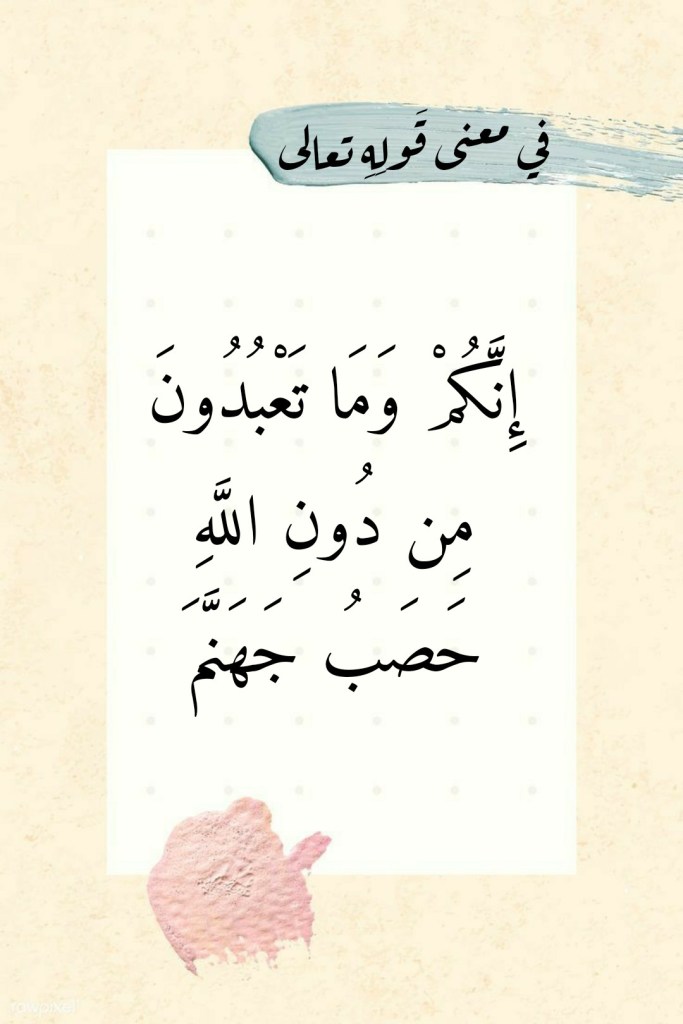 في معنى قَولِهِ تعالى
إِنَّكُمْ وَمَا تَعْبُدُونَ
مِن دُونِ اللَّهِ
حَصَبُ جَهَنَّمَ
rawpixel